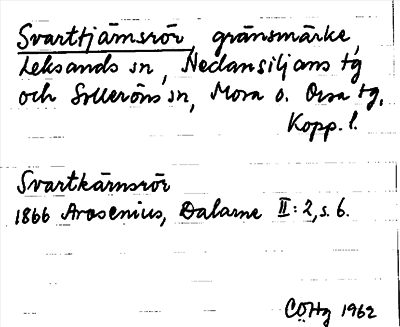 Svarttjärnsrör, gränsmärke,
Leksands sn, Nedansiljans tg
och Solleröns sn, Mora o. Orsa tg,
Kopp. l.
Svartkärnsrör
1866 Arosenius, Dalarne II: 2, s. 6.
CÖHg 1962